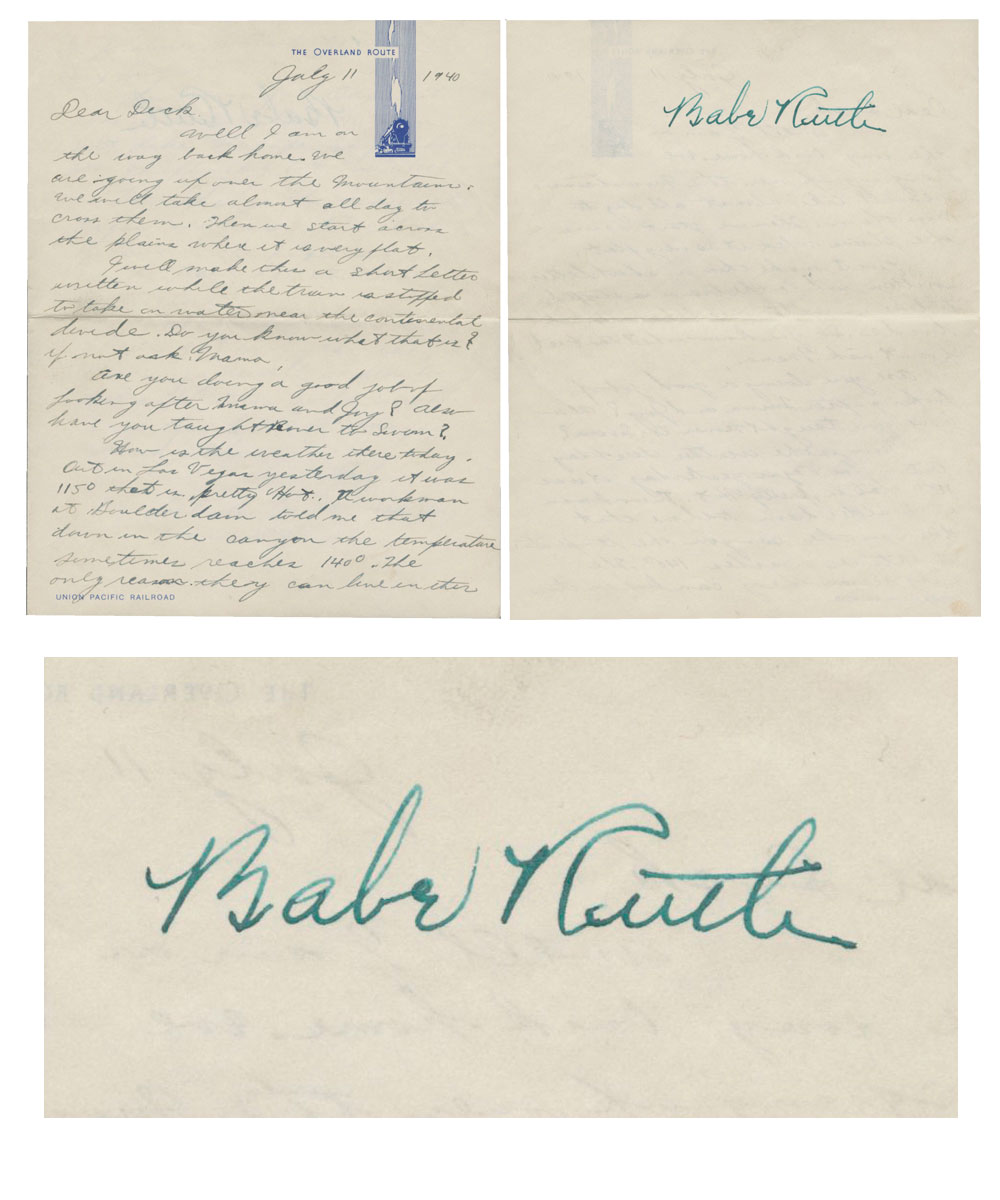 THE OVERLAND ROUTE
July 11 1940
Dear Dick
Well I am on
the way back home. We
are going up over the Mountains.
we will take almost all day to
cross them. Then we start across
the plains where it is very flat.
I will make this a short letter
written while the train is stopped
to take on water near the contenental
divide. Do you know what that is?
if not ask Mama.
Are you doing a good job of
looking after Mama and Joy? Also
have you taught Rover to Swim?
How is the weather there today.
Out in Las Vegas yesterday it was
115° that is pretty Hot. A workman
at Boulder dam told me that
down in the canyon the temperature
sometimes reaches 140°. The
only reason they can live in this
UNION PACIFIC RAILROAD
Babe Ruth
Babe Ruth